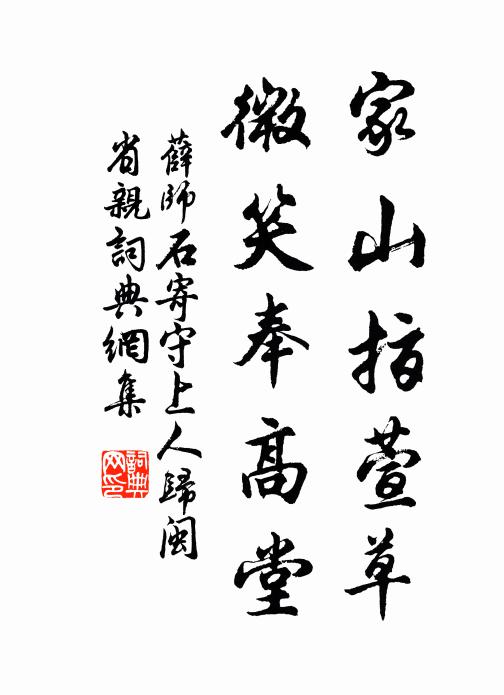 家山指萱草
微笑奉高堂
薛師石寄守上人歸閩
省親詞典網集
詞典网印